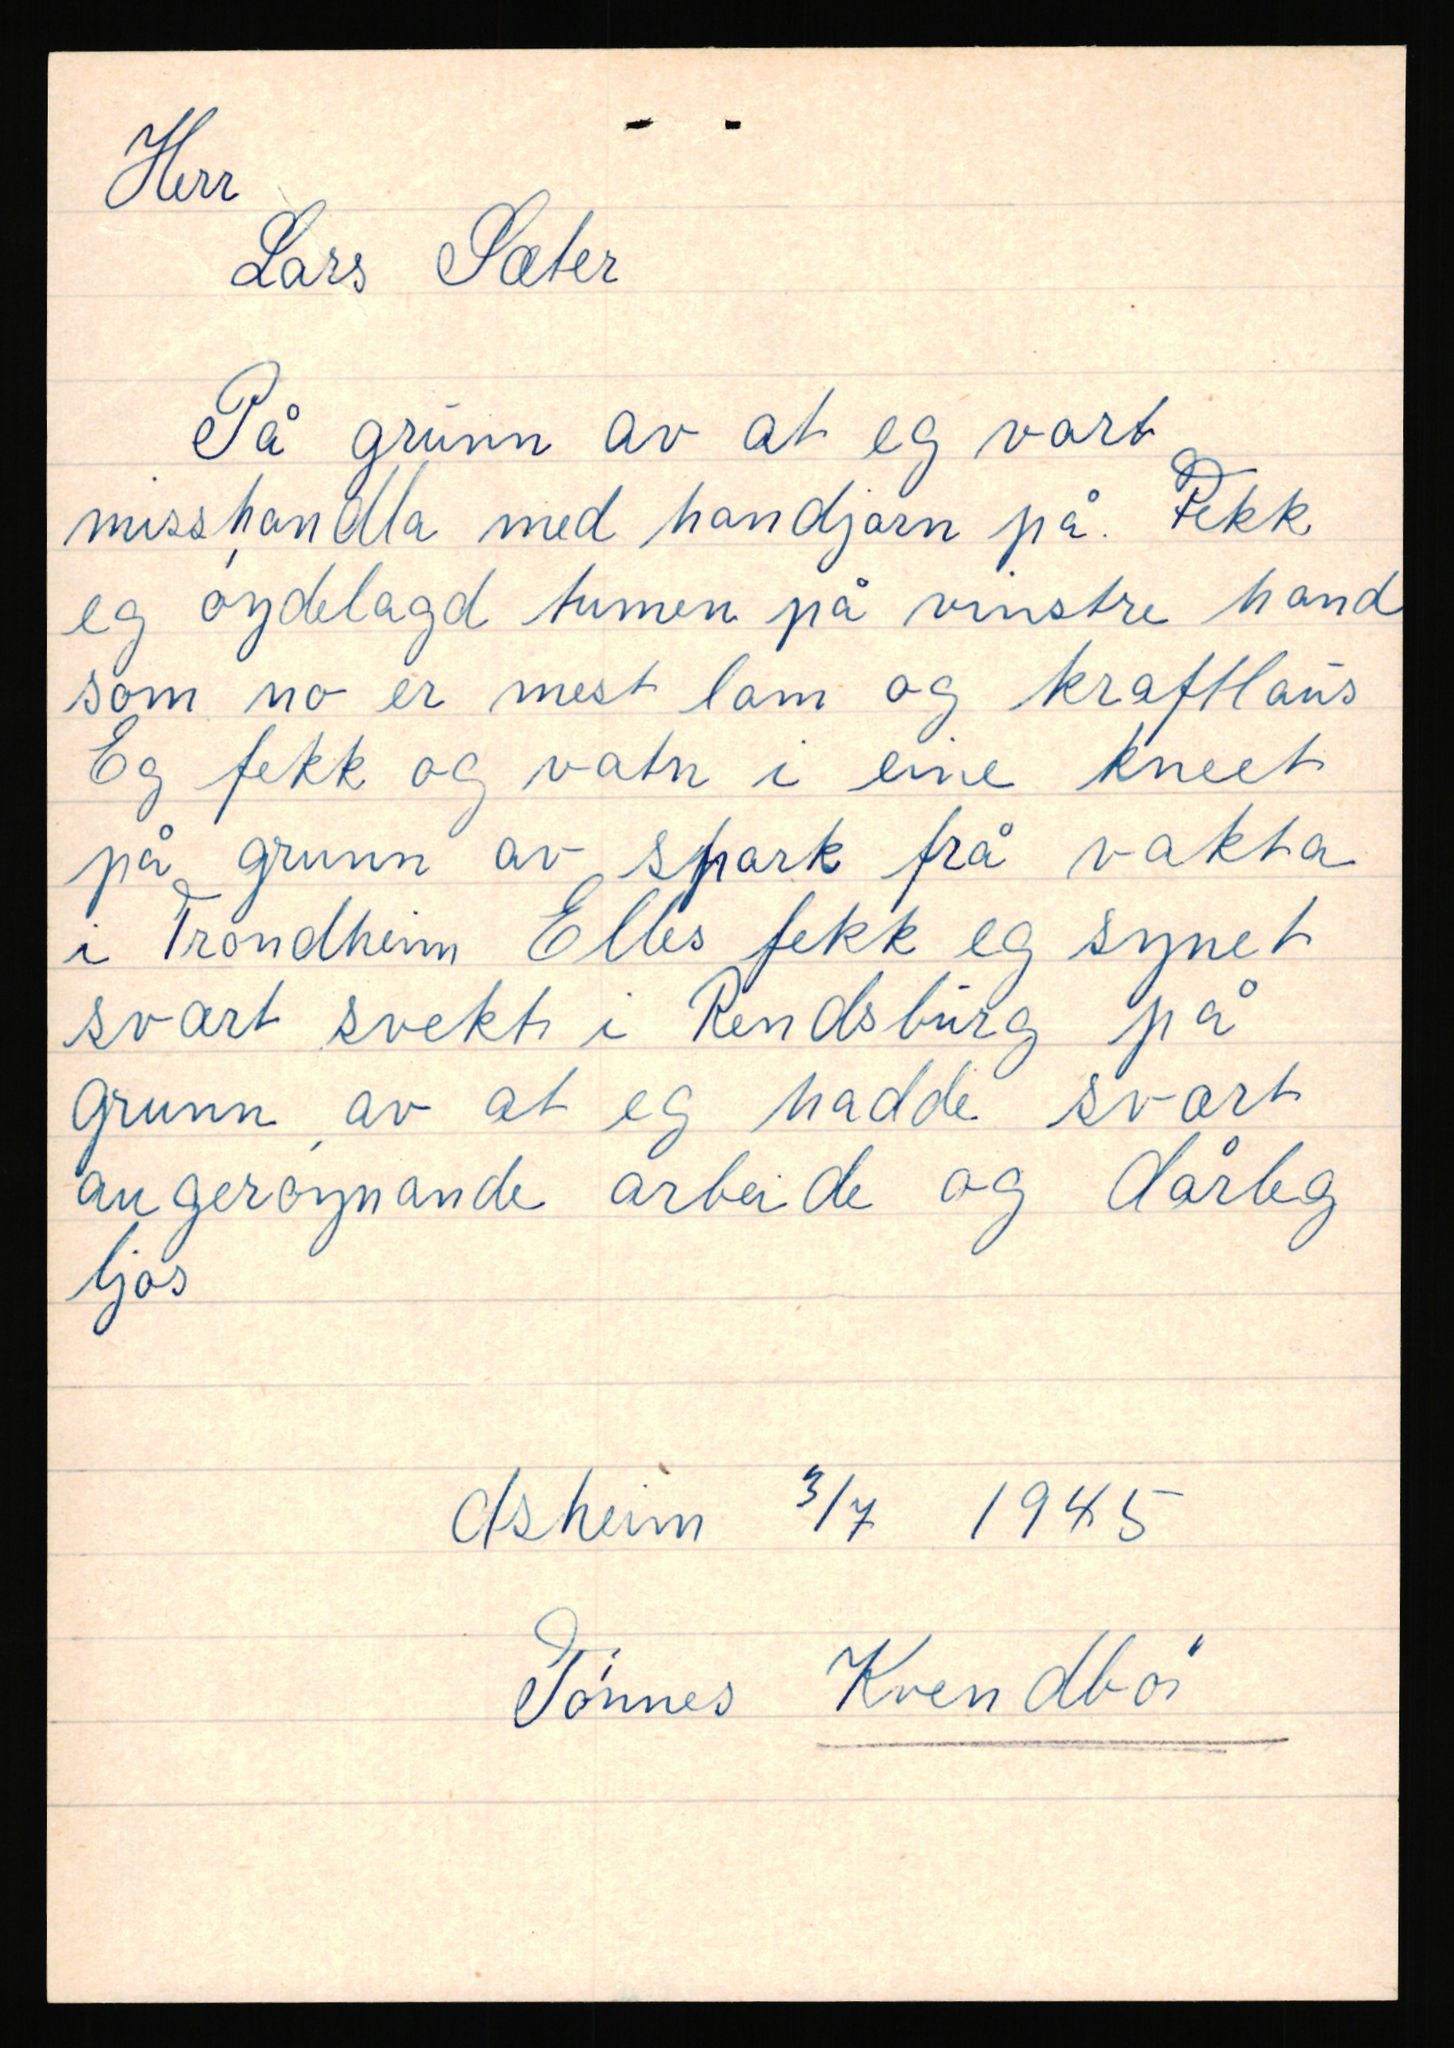 Herr
Lars Sæter
På grunn av at eg vart
misshandla med handjarn på. Fekk
eg óydelagd tumen på vinstre hand
som no er mest lam og kraftlaus
Eg fekk og vatn i eine kneet
på grunn av spark frå vakta
i Trondheim Elles fekk eg synet
svært svekt i Rendsburg på
grunn av at eg hadde svært
augeróynande arbeide og dårleg
ljos
Asheim 3/7 1945
Tónnes Kvendbö